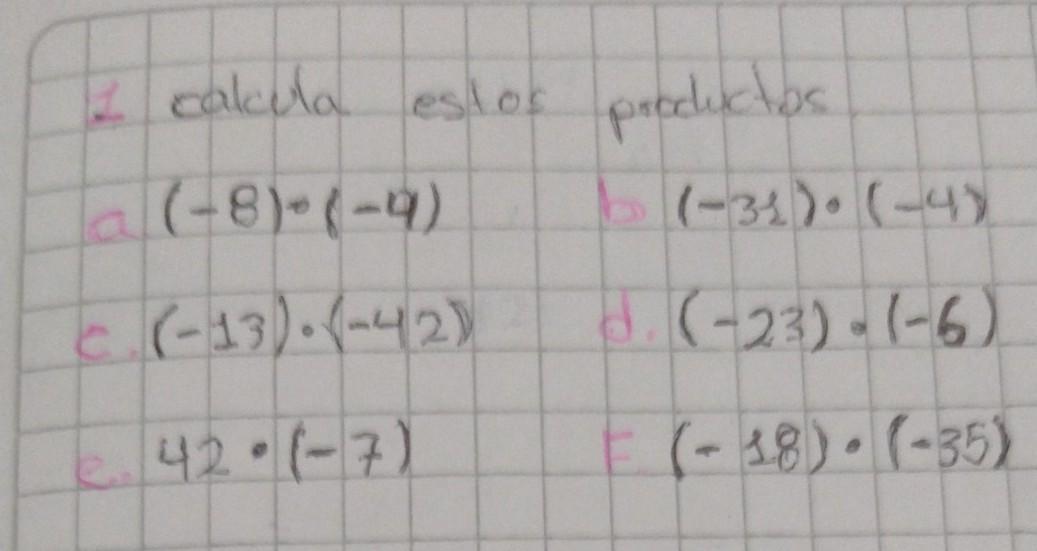 1 calcula estos productos
a (-8)•(-9) b (-31)•(-4)
c. (-13)•(-42) d. (-23)•(-6)
e. 42•(-7) F (-18)•(-35)